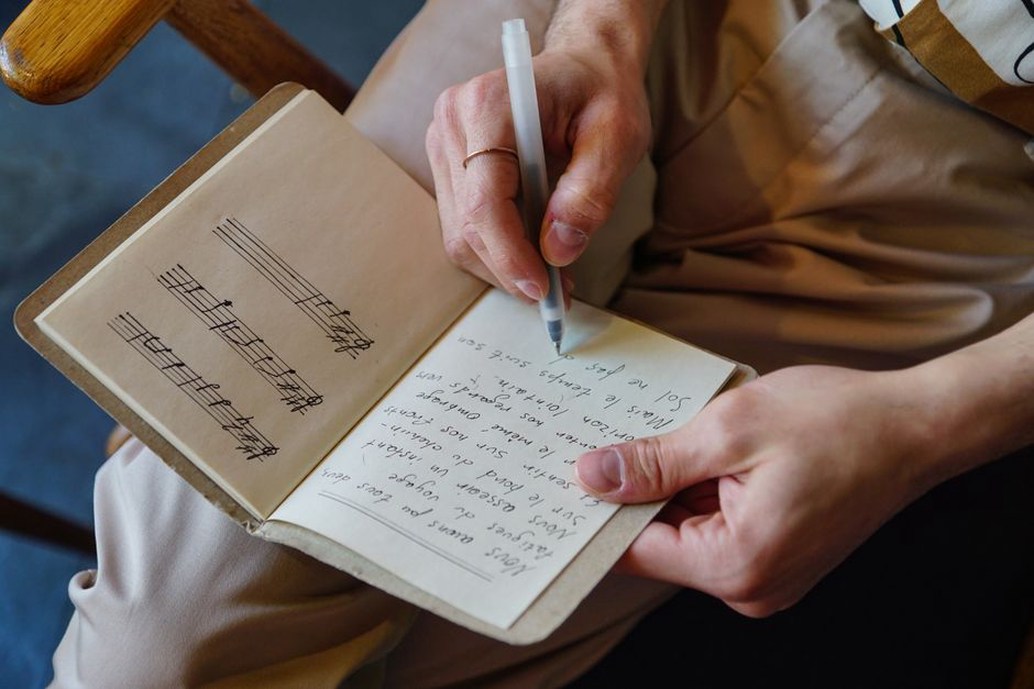 Nous avons pu tous deux
fatigues du voyage
Nous asseoir un instant
sur le bord du chemin-
sentir sur nos fronts
le même ombrage
nos regards vers
orizon lointain.
Mais le temps suit son
Sol ne pas